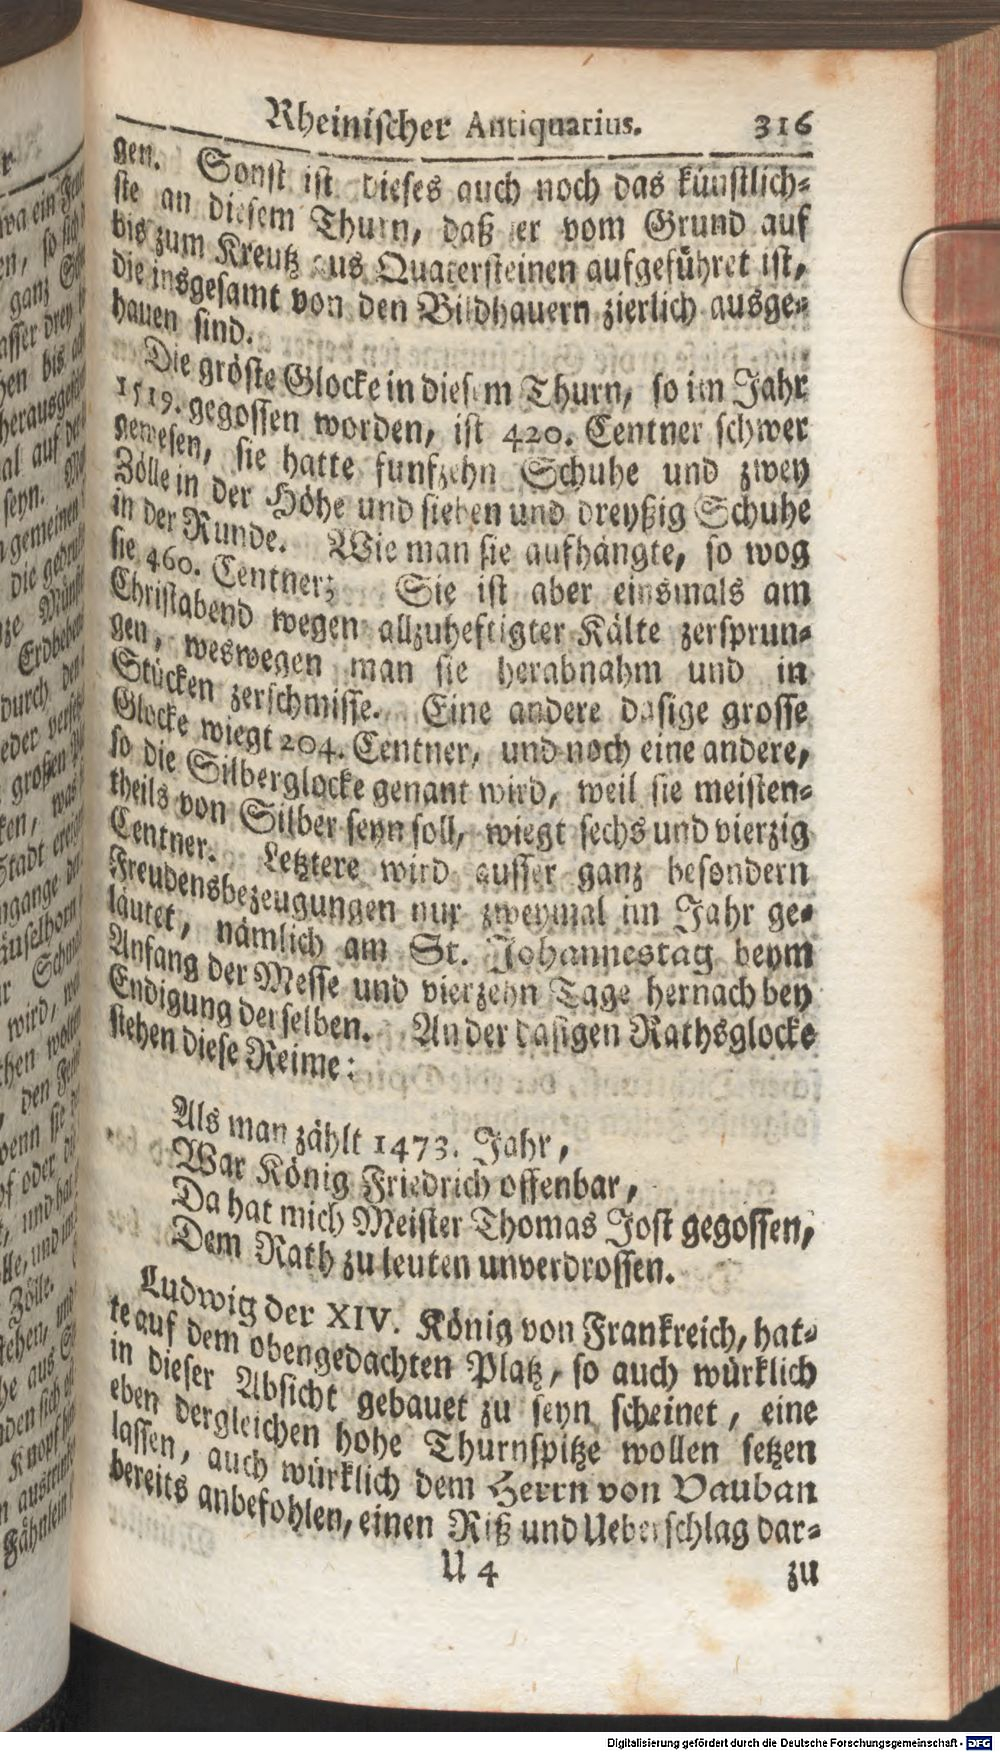 Rheinischer Antiquarius. 316
gen. Sonst ist dieses auch noch das künstlich-
ste an diesem Thurn, daß er vom Grund auf
bis zum Kreutz aus Quatersteinen aufgeführet ist,
die insgesamt von den Bildhauern zierlich ausge-
hauen sind.
Die gröste Glocke in diesem Thurn, so im Jahr
1519. gegossen worden, ist 420. Centner schwer
gewesen, sie hatte funfzehn Schuhe und zwey
Zölle in der Höhe und sieben und dreyßig Schuhe
in der Runde. Wie man sie aufhängte, so wog
sie 460. Centner; Sie ist aber einsmals am
Christabend wegen allzuheftigter Kälte zersprun-
gen, weswegen man sie herabnahm und in
Stücken zerschmisse. Eine andere dasige grosse
Glocke wiegt 204. Centner, und noch eine andere,
so die Silberglocke genant wird, weil sie meisten-
theils von Silber seyn soll, wiegt sechs und vierzig
Centner. Letztere wird ausser ganz besondern
Freudensbezeugungen nur zweymal im Jahr ge-
läutet, nämlich am St. Johannestag beym
Anfang der Messe und vierzehn Tage hernach bey
Endigung derselben. An der dasigen Rathsglocke
stehen diese Reime:
Als man zählt 1473. Jahr,
War König Friedrich offenbar,
Da hat mich Meister Thomas Jost gegossen,
Dem Rath zu leuten unverdrossen.
Ludwig der XIV. König von Frankreich, hat-
te auf dem obengedachten Platz, so auch würklich
in dieser Absicht gebauet zu seyn scheinet, eine
eben dergleichen hohe Thurnspitze wollen setzen
lassen, auch würklich dem Herrn von Vauban
bereits anbefohlen, einen Riß und Ueberschlag dar-
U 4 zu
Digitalisierung gefördert durch die Deutsche Forschungsgemeinschaft - DFG